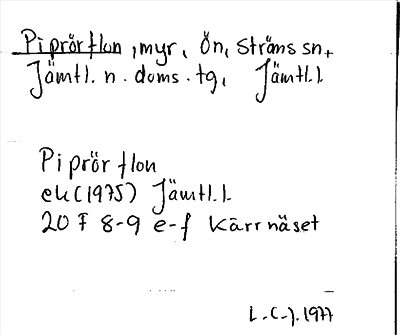 Piprörflon, myr, Ön, Ströms sn,
Jämtl. n. doms. tg, Jämtl. l.
Piprörflon
ek (1975) Jämtl. l.
20 F 8-9 e-f Kärrnäset
L.-C-J. 1977